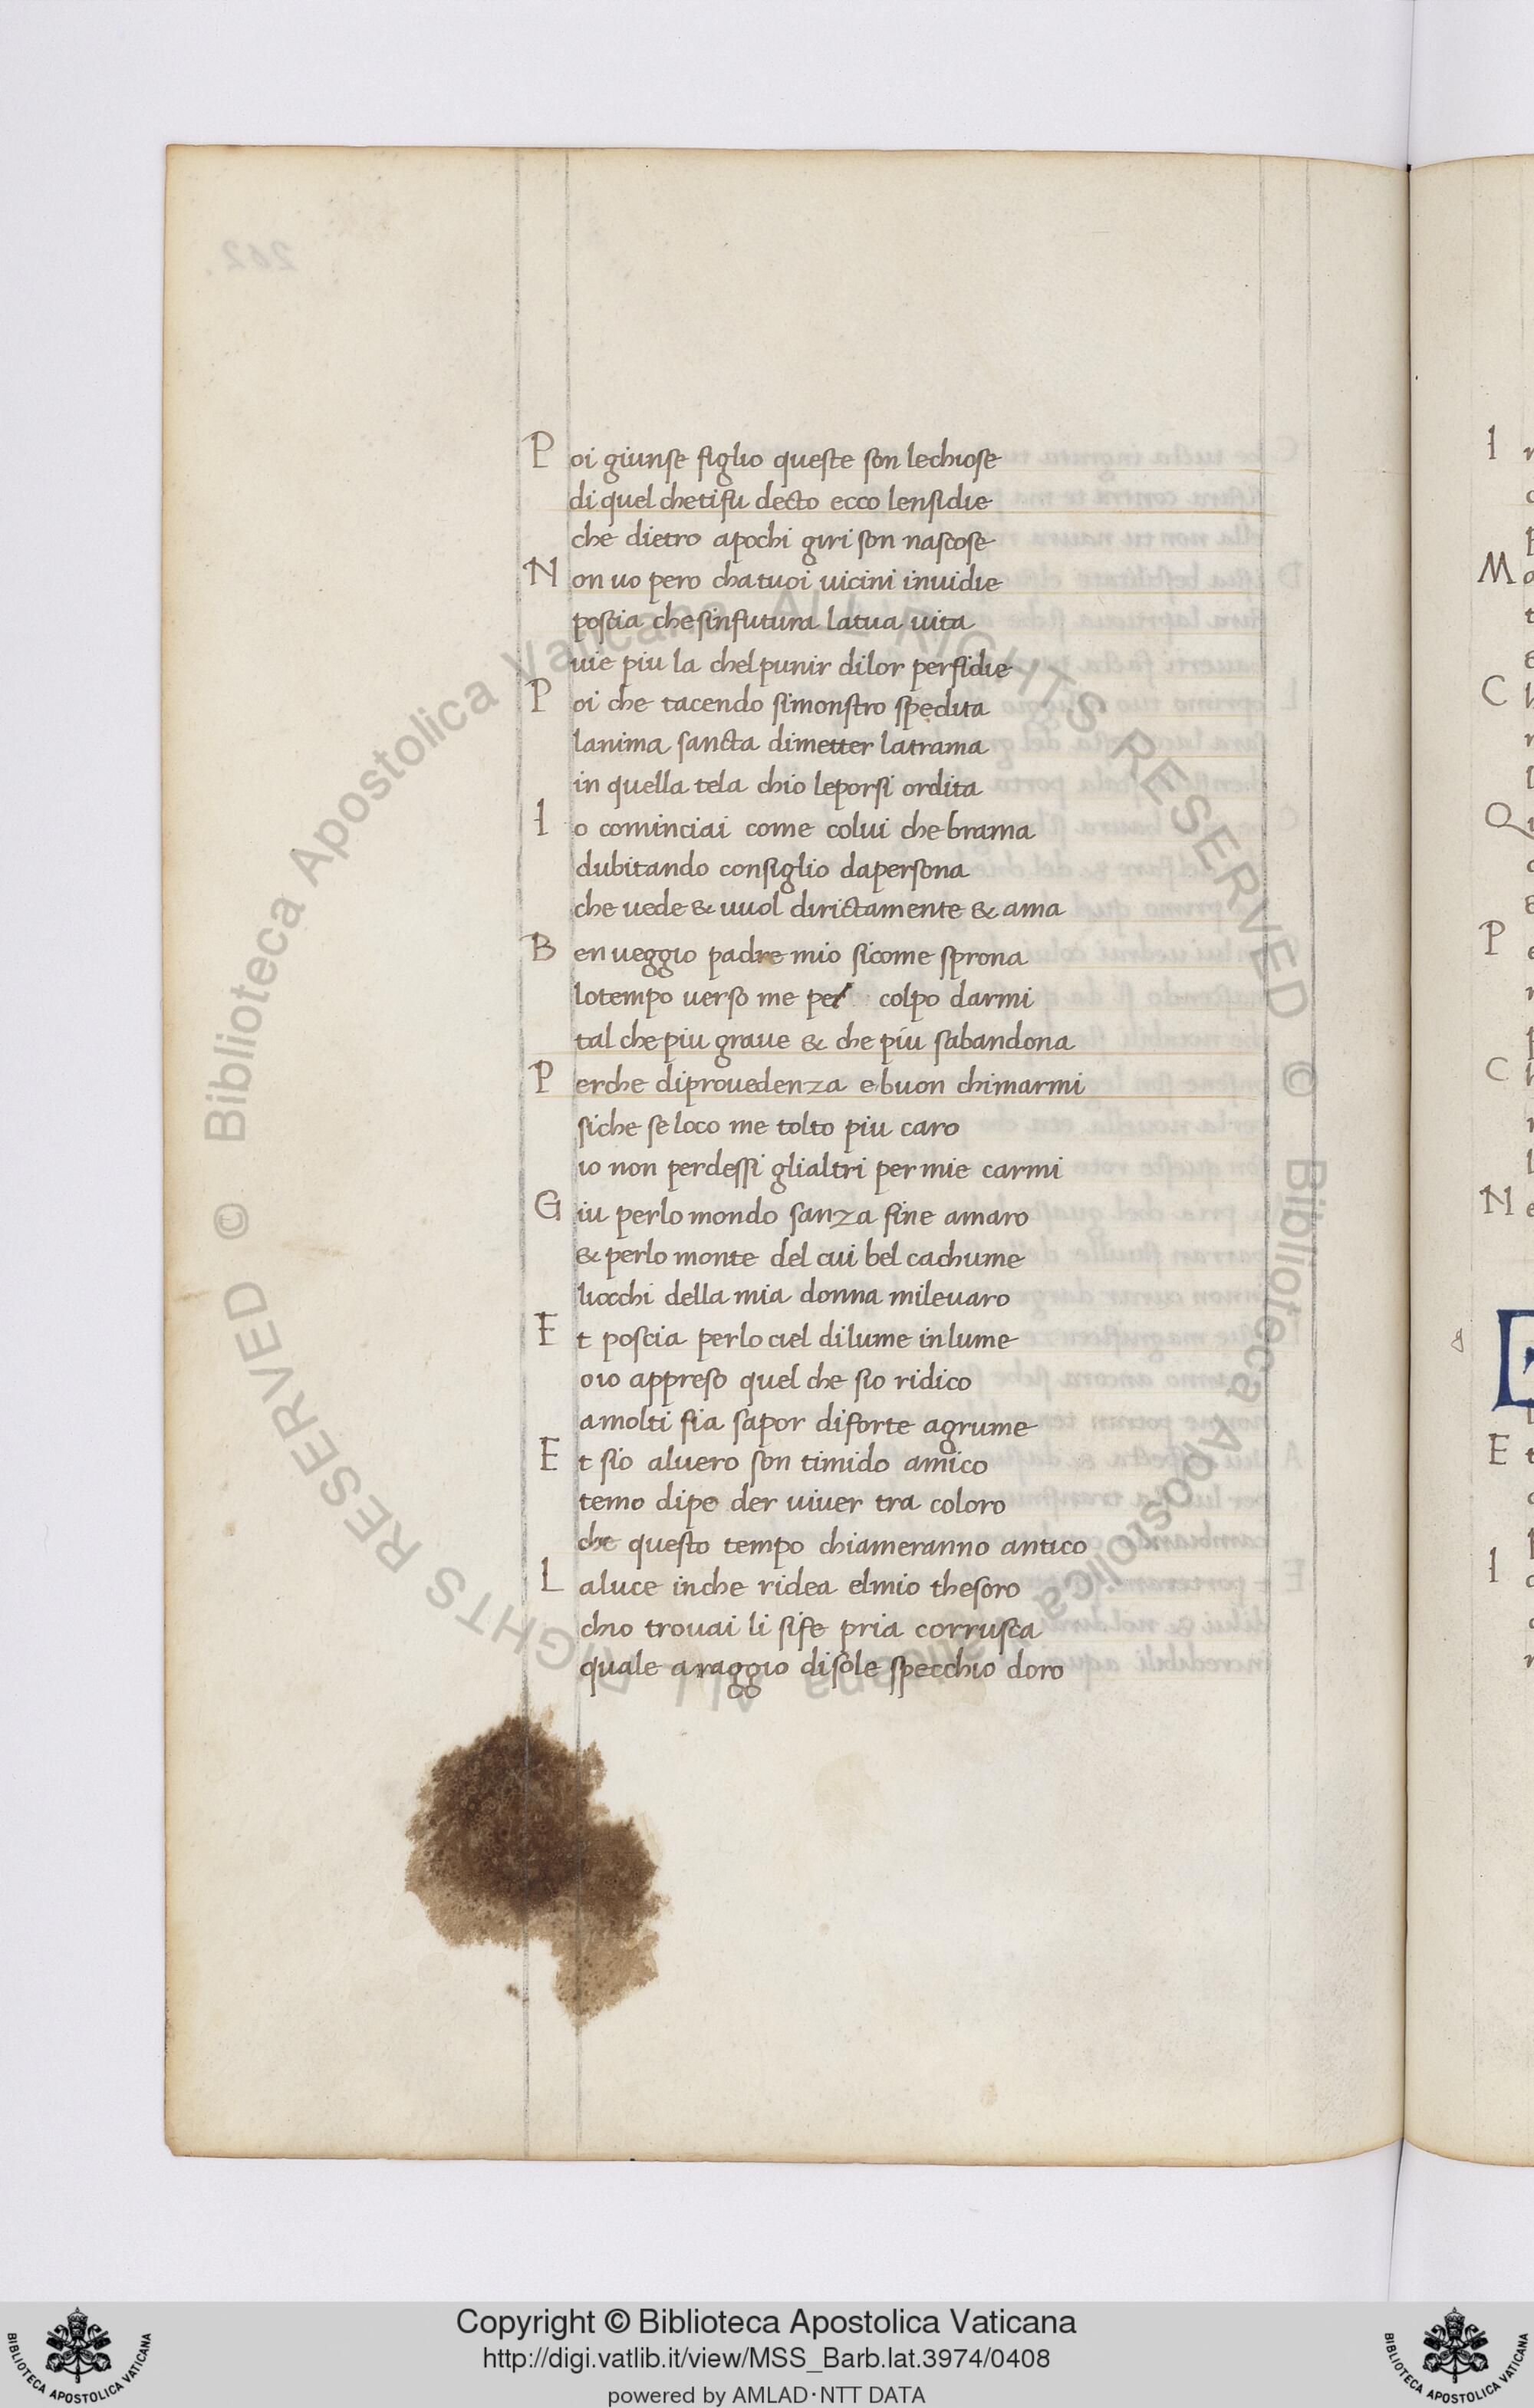 Poi giunse figlio queste son lechiose
di quel chetifu decto ecco lensidie
che dietro apochi giri son nascose
Non uo pero chatuoi uicini inuidie
poscia chesinfutura latua uita
uie piu la chelpunir dilor perfidie
Poi che tacendo simonstro spedita
lanima sancta dimetter latrama
in quella tela chio leporsi ordita
Io cominciai come colui che brama
dubitando consiglio dapersona
che uede & uuol dirictamente & ama
Ben ueggio padre mio sicome sprona
lotempo uerso me per colpo darmi
tal che piu graue & che piu sabandona
Perche diprouedenza e buon chimarmi
siche se loco me tolto piu caro
io non perdessi glialtri per mie carmi
Giu perlo mondo sanza fine amaro
& perlo monte del cui bel cachume
liocchi della mia donna mileuaro
Et poscia perlo ciel dilume inlume
oio appreso quel che sio ridico
amolti fia sapor diforte agrume
Et sio aluero son timido amico
temo dipe der uiuer tra coloro
che questo tempo chiameranno antico
Laluce inche ridea elmio thesoro
chio trouai li sife pria corrusca
quale araggio disole specchio doro
Copyright © Biblioteca Apostolica Vaticana
http://digi.vatlib.it/view/MSS_Barb.lat.3974/0408
powered by AMLAD·NTT DATA